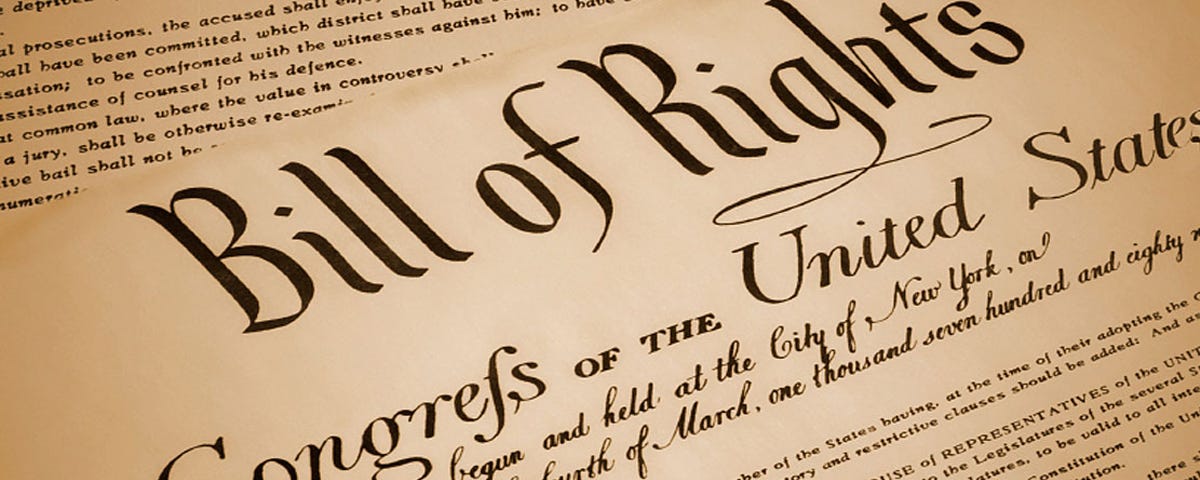 the accused shall
al prosecutions, the accused shall
all have been committed, which district shall have
sation; to be confronted with the witnesses against him; to have
ssistance of counsel for his defence.
at common law, where the value in controversy
a jury, shall be otherwise re-exam
ive bail shall not be
numerati
Bill of Rights
Congreſs OF THE United States
begun and held at the City of New York, on
March, one thousand seven hundred and eighty
of the States having, at the time of their adopting the
and restrictive clauses should be added: And as
of REPRESENTATIVES of the UNIT
the Legislatures of the several S
to be valid to all
Constitution of the